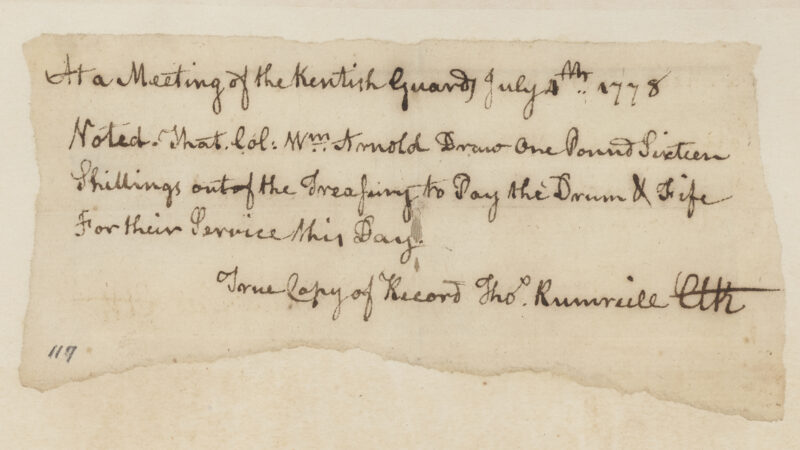 At a Meeting of the Kentish Guards July 4th. 1778
Noted. That. Col: Wm. Arnold Draw One Pound Sixteen
Shillings out of the Treasury to Pay the Drum & Fife
For their Service this Day.
True Copy of Record Tho.s Rumreill Clk
117